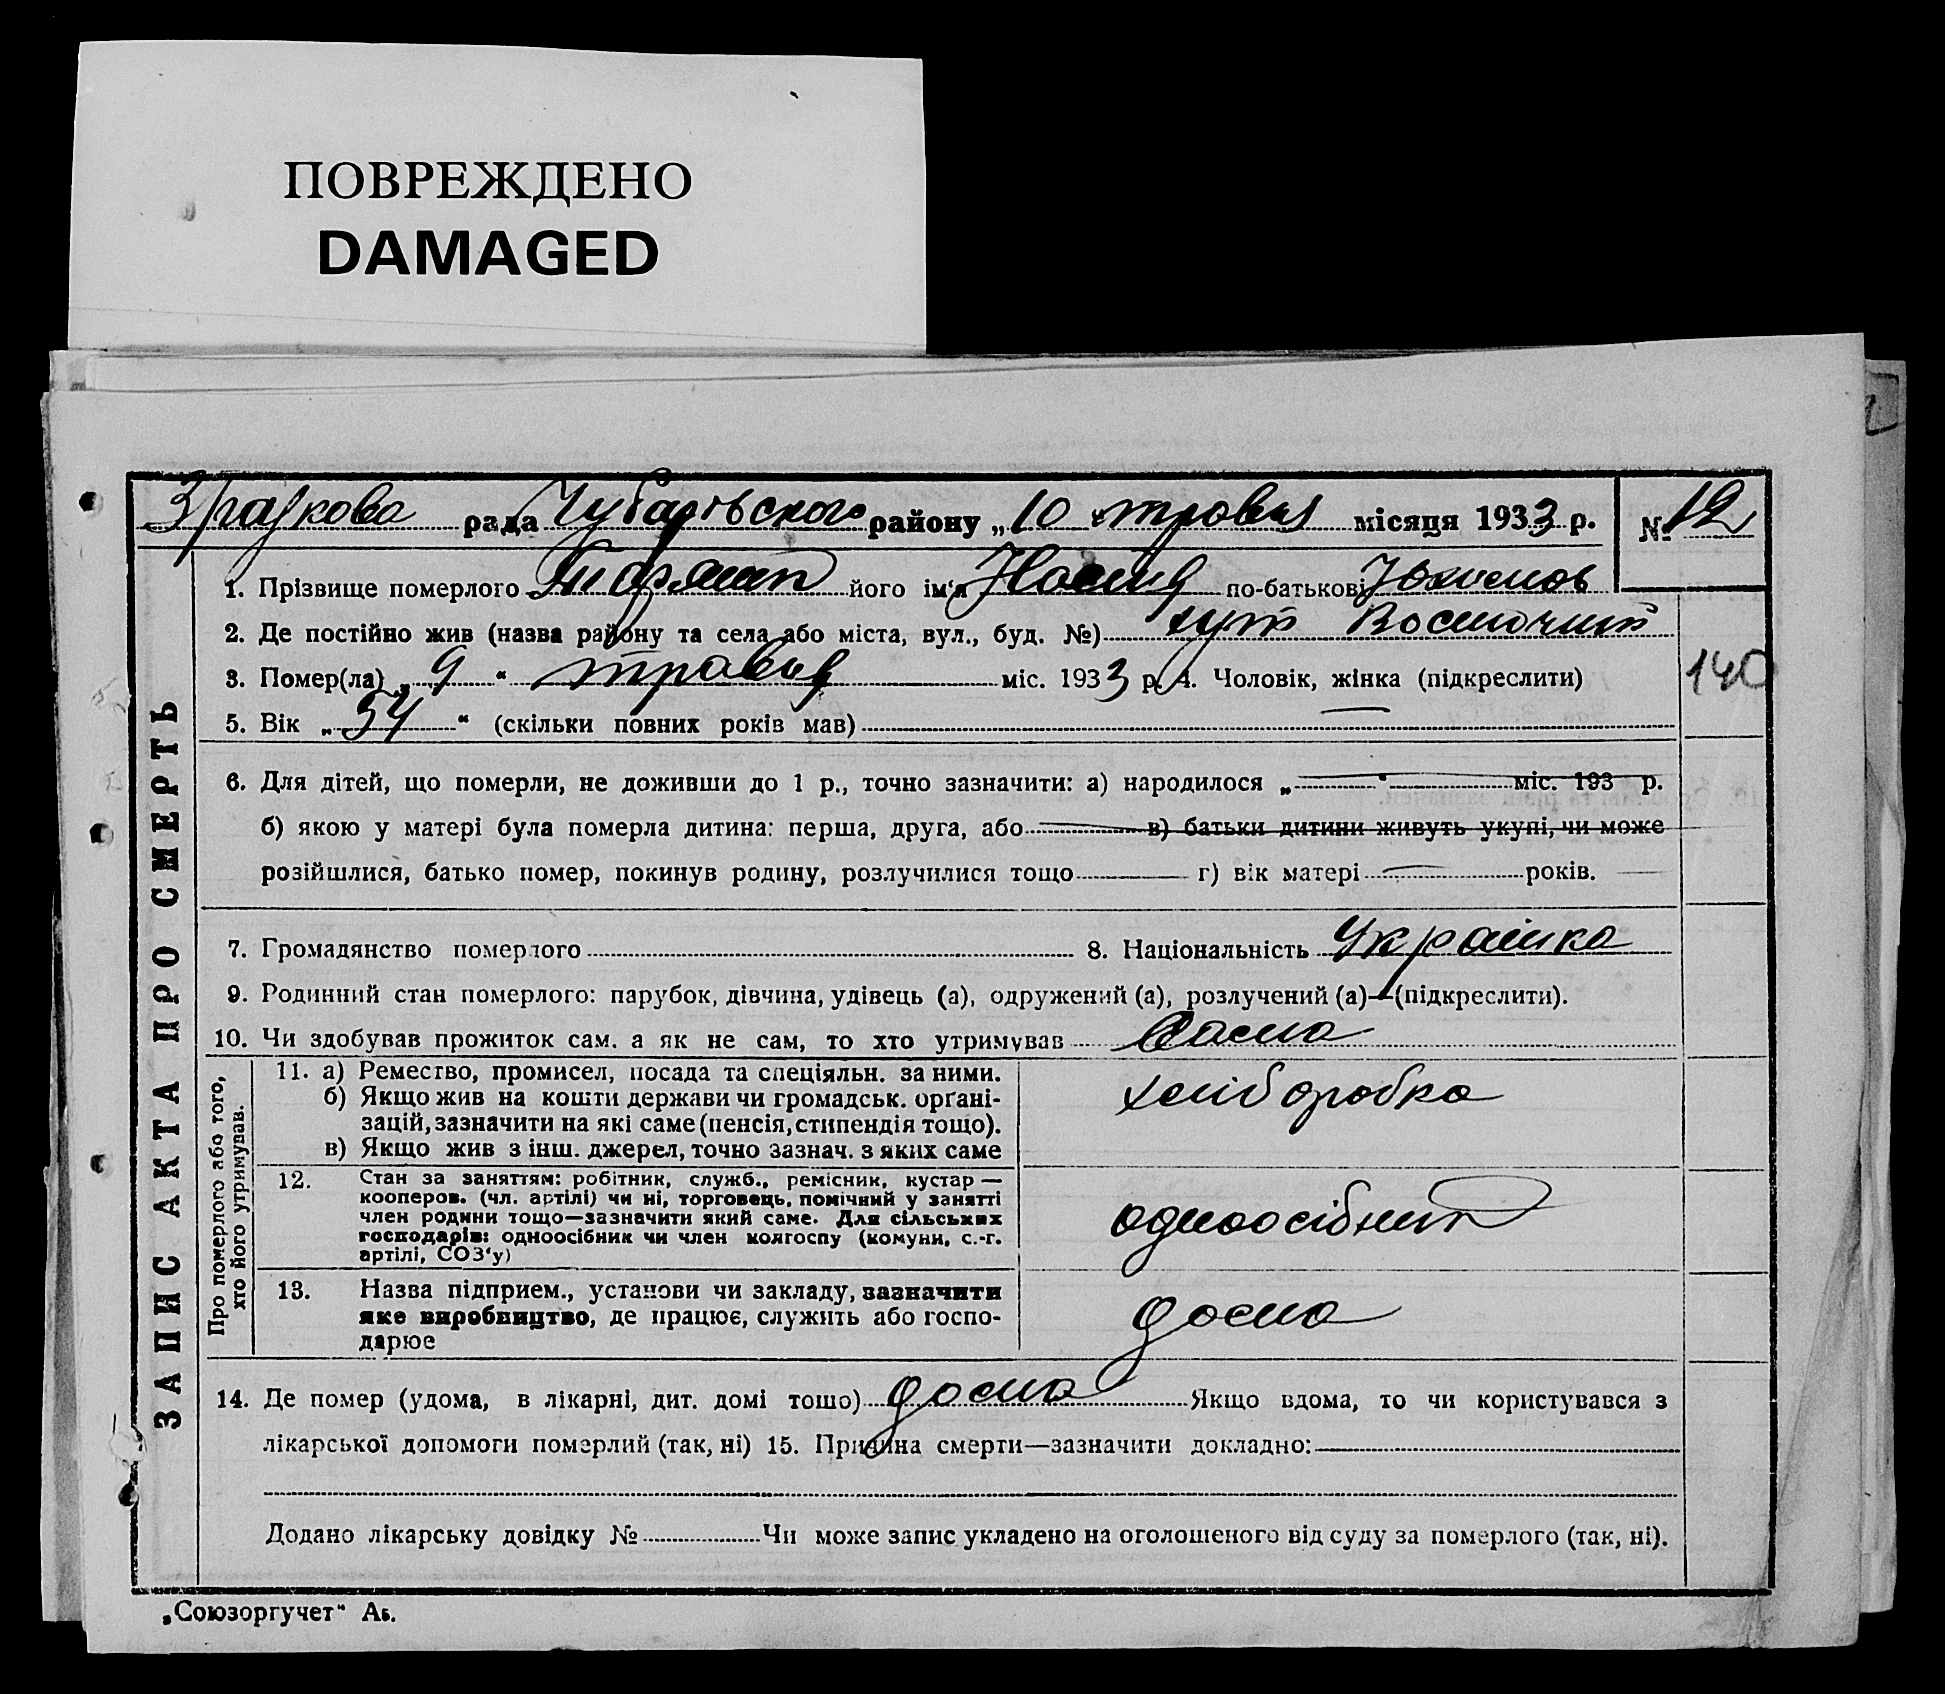 ПОВРЕЖДЕНО
DAMAGED
рада Чубарівського району „10“ травня місяця 1933 р. № 12
1. Прізвище померлого його ім'я по-батькові
2. Де постійно жив (назва району та села або міста, вул., буд. №) хут
3. Помер(ла) „9“ травня міс. 1933 р. 4. Чоловік, жінка (підкреслити)
140
5. Вік „54“ (скільки повних років мав)
6. Для дітей, що померли, не доживши до 1 р., точно зазначити: а) народилося „ “ міс. 193 р.
б) якою у матері була померла дитина: перша, друга, або в) батьки дитини живуть укупі, чи може
розійшлися, батько помер, покинув родину, розлучилися тощо г) вік матері років.
7. Громадянство померлого 8. Національність Українка
9. Родинний стан померлого: парубок, дівчина, удівець (а), одружений (а), розлучений (а)—(підкреслити).
10. Чи здобував прожиток сам, а як не сам, то хто утримував Сама
ЗАПИС АКТА ПРО СМЕРТЬ
Про померлого або того,
хто його утримував.
11. а) Ремество, промисел, посада та спеціяльн. за ними.
б) Якщо жив на кошти держави чи громадськ. орґані-
зацій, зазначити на які саме (пенсія, стипендія тощо).
в) Якщо жив з інш. джерел, точно зазнач. з яких саме
хліборобка
12. Стан за заняттям: робітник, служб., ремісник, кустар —
кооперов. (чл. артілі) чи ні, торговець, помічний у занятті
член родини тощо—зазначити який саме. Для сільських
господарів: одноосібник чи член колгоспу (комуни, с.-г.
артілі, СОЗ'у)
одноосібник
13. Назва підприєм., установи чи закладу, зазначити
яке виробництво, де працює, служить або госпо-
дарює
дома
14. Де помер (удома, в лікарні, дит. домі тощо) дома Якщо вдома, то чи користувався з
лікарської допомоги померлий (так, ні) 15. Причина смерти—зазначити докладно:
Додано лікарську довідку № Чи може запис укладено на оголошеного від суду за померлого (так, ні).
„Союзоргучет“ Аб.